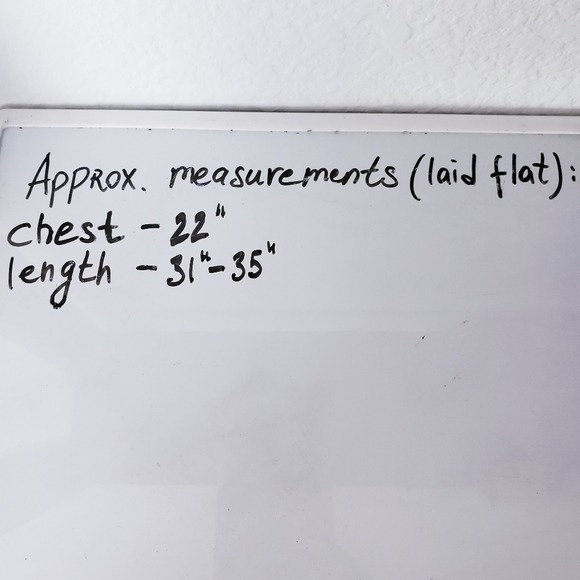 Approx. measurements (laid flat):
chest - 22"
length - 31"- 35"